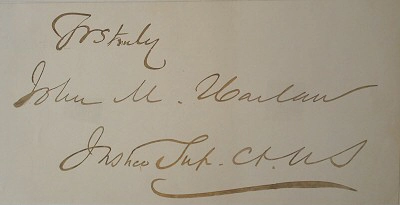 Yrs truly
John M. Harlan
Justice Sup. Ct. U S